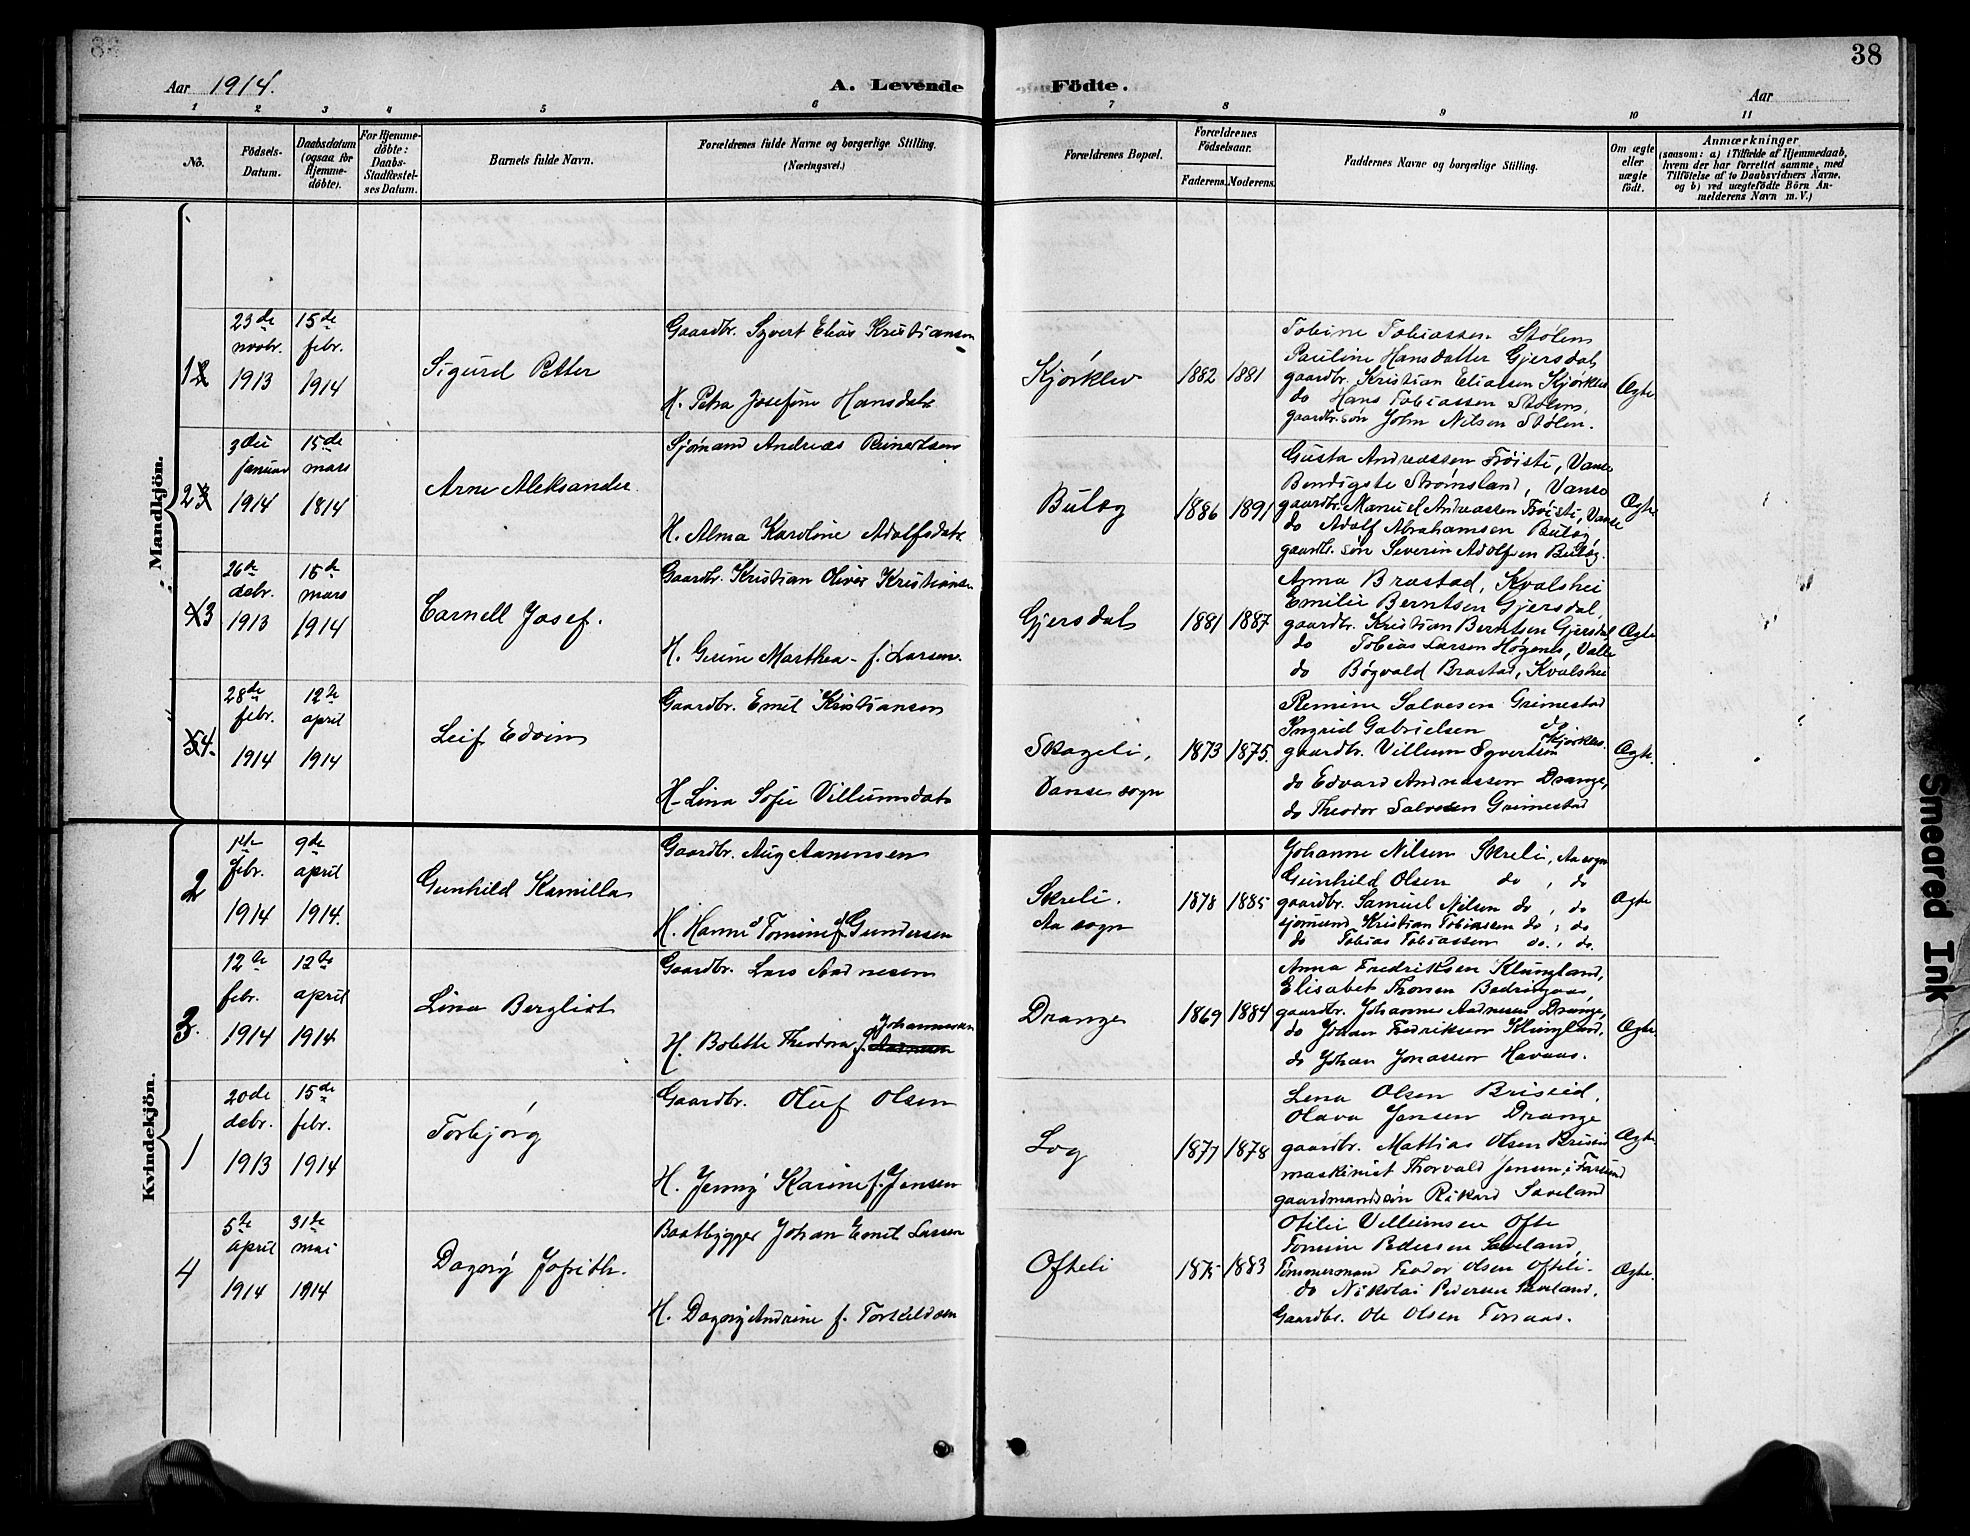 38
Aar 1914.
A. Levende Födte.
Aar
1 2 3 4 5 6 7 8 9 10 11
No.
Födsels-Datum.
Daabsdatum (ogsaa for Hjemme-döbte).
For Hjemme-döbte: Daabs-Stadfæstel-ses Datum.
Barnets fulde Navn.
Forældrenes fulde Navne og borgerlige Stilling.
(Næringsvei.)
Forældrenes Bopæl.
Forældrenes Födselsaar.
Faderens. Moderens.
Faddernes Navne og borgerlige Stilling.
Om ægte eller uægte födt.
Anmærkninger
(saasom: a) i Tilfælde af Hjemmedaab,
hvem der har forrettet samme, med
Tilföielse af to Daabsvidners Navne,
og b) ved uægtefödte Börn An-
melderens Navn m. V.)
Mandkjön.
1
23de novbr. 1913
15de febr. 1914
Sigurd Petter
Gaardbr. Syvert Elias Kristiansen
H. Petra Josefine Hansdatr
Kjørklev
1882 1881
Tobine Tobiassen Stølen
Pauline Hansdatter Gjersdal
gaardbr. Kristian Eliassen Kjørklev
do Hans Tobiassen Stølen,
gaardbr.søn John Nilsen Stølen.
Ægte
2
3die januar 1914
15de mars 1814
Arne Aleksander
Sjømand Andreas Reinertsen
H. Alma Karoline Adolfsdatr
Buløg
1886 1891
Gusta Andreassen Frøisti, Vanse
Bendigste Strømsland, Vanse
gaardbr. Manuel Andreassen Frøisti, Vanse
do Adolf Abrahamsen Buløg
gaardbr. søn Severin Adolfsen Buløg.
Ægte
3
26de debr. 1913
15de mars 1914
Carnell Josef.
Gaardbr. Kristian Oliver Kristiansen
H. Gerine Marthea f. Larsen.
Gjersdal
1881 1887
Anna Brastad, Kvalshei
Emilie Berntsen Gjersdal,
gaardbr. Kristian Berntsen Gjersdal
do Tobias Larsen Høgenes, Valle
do Bøgvald Brastad, Kvalshei
Ægte
4.
28de febr. 1914
12te april 1914
Leif Edvin
Gaardbr. Emil Kristiansen
H. Lina Sofie Villiumsdatr
Skageli, Vanse sogn
1873 1875.
Remine Salvesen Grimestad
Ingrid Gabrielsen do
gaardbr. Villium Syvertsen Kjørklev.
do Edvard Andreassen Drange,
do Theodor Salvesen Grimestad
Ægte.
Kvindekjön.
2
1ste febr. 1914
9de april 1914.
Gunhild Kamilla
Gaardbr. Aug Aanensen
H. Hanne Tomine f. Gundersen
Skreli. Aa sogn
1878 1885
Johanne Nilsen Skreli, Aa sogn
Gunhild Olsen do, do
gaardbr. Samuel Nilsen do, do
sjømand Kristian Tobiassen do, do
do Tobias Tobiassen do., do.
Ægte
3.
12te febr. 1914
12te april 1914
Lina Bergliot
Gaardbr. Lars Aadnesen
H. Bolette Theodora f. Johannessen
Drange
1869 1884
Anna Fredriksen Klungland,
Elisabet Thorsen
gaardbr. Johannes Aadnesen Drange,
do Johan Fredriksen Klungland,
do Johan Jonassen Havaas.
Ægte.
1
20de debr. 1913
15de febr. 1914
Torbjørg
Gaardbr. Oluf Olsen
H. Jenny Karine f. Jensen
Log
1877 1878
Lena Olsen Briseid,
Olava Jensen Drange
gaardbr. Mattias Olsen Briseid
maskinist Thorvald Jensen, Farsund
gaardmandssøn Rikard Saveland
Ægte
4
5te april 1914
31te mai 1914
Dagny Jofrith.
Baatbygger Johan Emil Larsen
H. Dagny Andrine f. Torkeldsen
Ofteli
1875 1883
Otilie Villiumsen Ofte
Tomine Pedersen Saveland,
Tømmermand Teodor Olsen Ofteli.
do Nikolai Pedersen Saveland,
Gaardbr. Ole Olsen Torsaas.
Ægte.
Smeared Ink